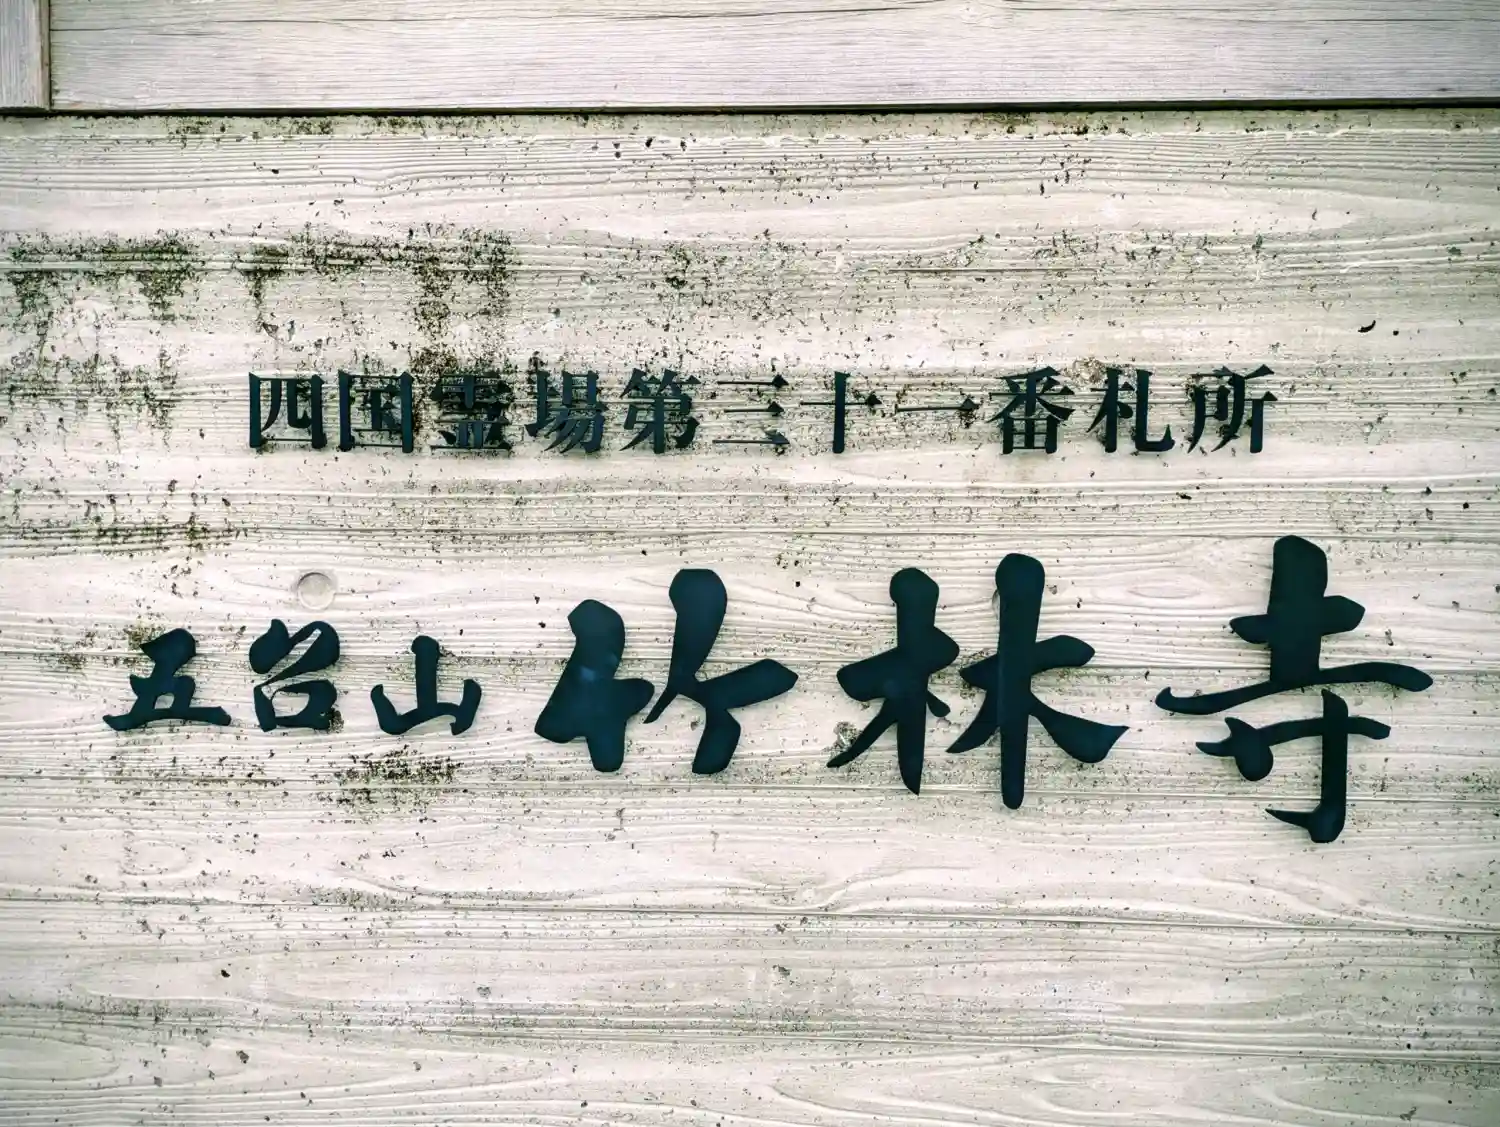 四国霊場第三十一番札所
五台山竹林寺